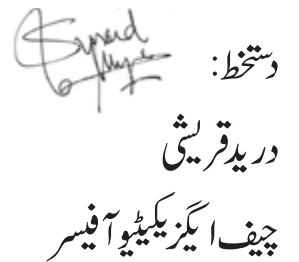 دستخط:
درید قریشی
چیف ایگزیکیٹیو آفیسر